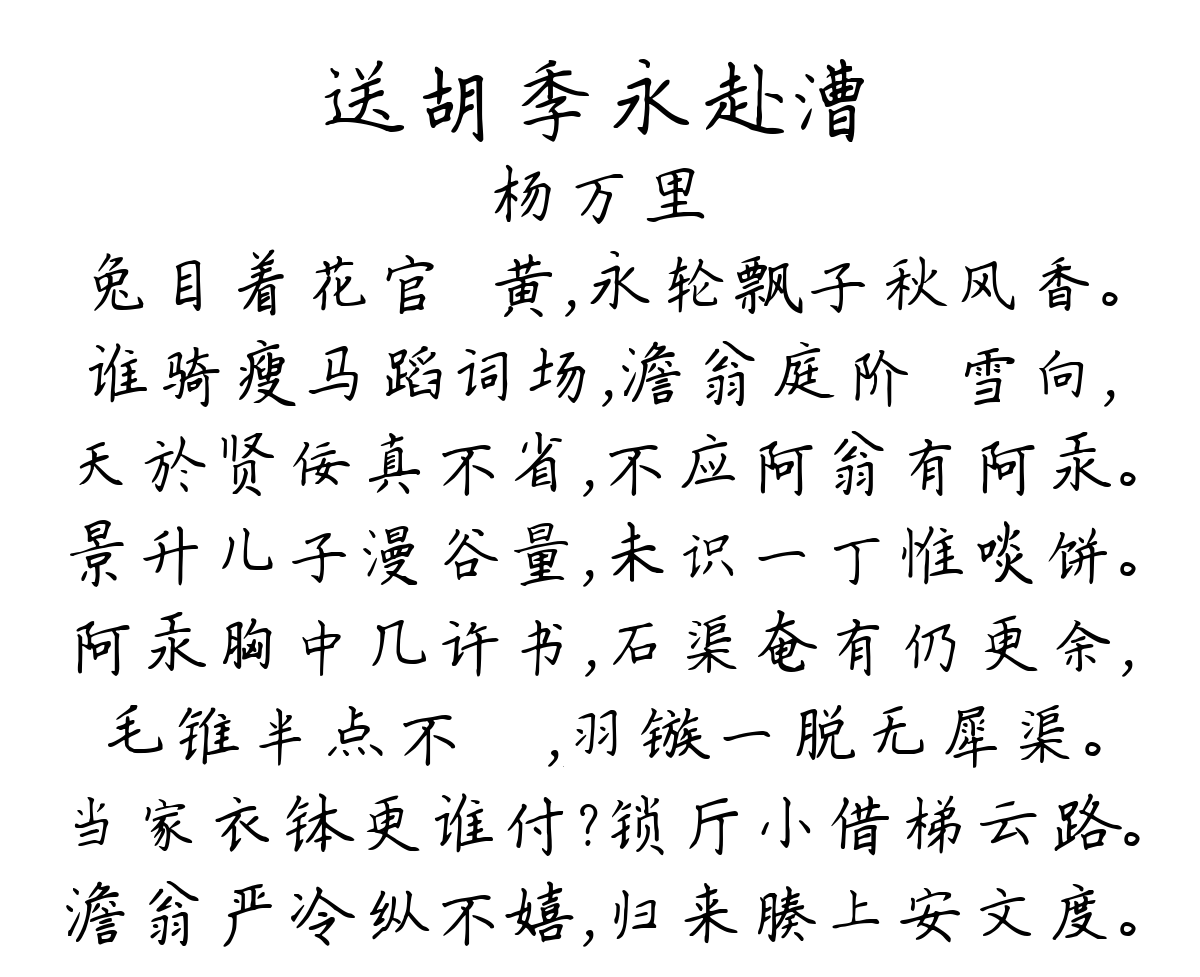 送胡季永赴漕
杨万里
兔目着花官 黄,永轮飘子秋风香。
谁骑瘦马蹈词场,澹翁庭阶 雪向,
天於贤佞真不省,不应阿翁有阿汞。
景升儿子漫谷量,未识一丁惟啖饼。
阿汞胸中几许书,石渠奄有仍更余,
毛锥半点不 ,羽镞一脱无犀渠。
当家衣钵更谁付?锁厅小借梯云路。
澹翁严冷纵不嬉,归来腠上安文度。